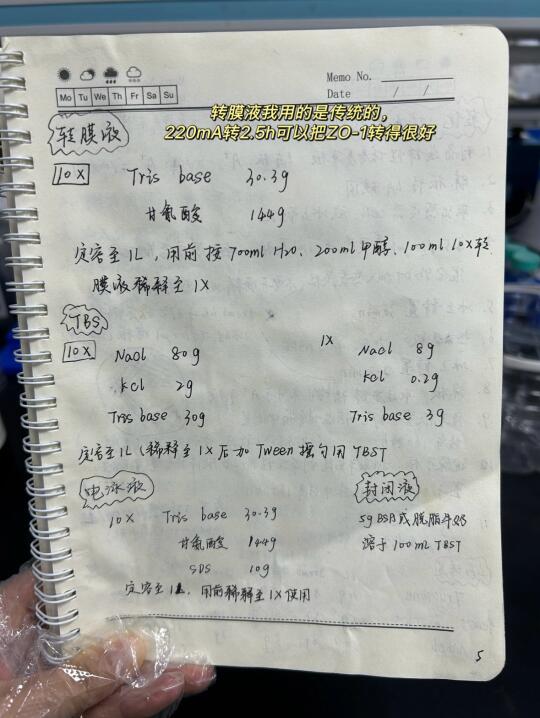 Memo No.
Mo Tu We Th Fr Sa Su
Date / /
转膜液我用的是传统的，
220mA转2.5h可以把ZO-1转得很好
转膜液
10X Tris base 30.3g
甘氨酸 144g
定容至1L，用前按700ml H2O、200ml甲醇、100ml 10X转
膜液稀释至1X
TBS
10X 1X
NaCl 80g NaCl 8g
KCl 2g KCl 0.2g
Tris base 30g Tris base 3g
定容至1L（稀释至1X后加Tween摇匀用 TBST
电泳液 封闭液
10X Tris base 30.3g 5g BSA或脱脂牛奶
甘氨酸 144g 溶于100mL TBST
SDS 10g
定容至1L，用前稀释至1X使用
5